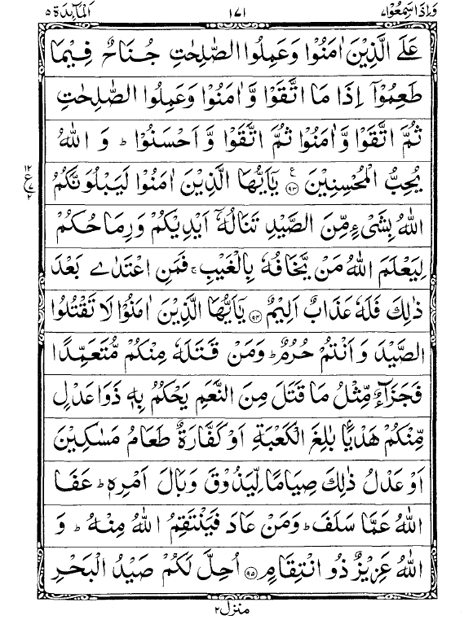 وَاِذَا سَمِعُوْا ٧ ١٧١ اَلْمَآئِدَة ٥
عَلَى الَّذِيْنَ اٰمَنُوْا وَعَمِلُوا الصّٰلِحٰتِ جُنَاحٌ فِيْمَا
طَعِمُوْٓا اِذَا مَا اتَّقَوْا وَّاٰمَنُوْا وَعَمِلُوا الصّٰلِحٰتِ
ثُمَّ اتَّقَوْا وَّاٰمَنُوْا ثُمَّ اتَّقَوْا وَّاَحْسَنُوْا ؕ وَ اللّٰهُ
يُحِبُّ الْمُحْسِنِيْنَ ﴿٩٣﴾ يٰٓاَيُّهَا الَّذِيْنَ اٰمَنُوْا لَيَبْلُوَنَّكُمُ
اللّٰهُ بِشَيْءٍ مِّنَ الصَّيْدِ تَنَالُهٗۤ اَيْدِيْكُمْ وَرِمَاحُكُمْ
لِيَعْلَمَ اللّٰهُ مَنْ يَّخَافُهٗ بِالْغَيْبِ ۚ فَمَنِ اعْتَدٰى بَعْدَ
ذٰلِكَ فَلَهٗ عَذَابٌ اَلِيْمٌ ﴿٩٤﴾ يٰٓاَيُّهَا الَّذِيْنَ اٰمَنُوْا لَا تَقْتُلُوا
الصَّيْدَ وَاَنْتُمْ حُرُمٌ ؕ وَمَنْ قَتَلَهٗ مِنْكُمْ مُّتَعَمِّدًا
فَجَزَآءٌ مِّثْلُ مَا قَتَلَ مِنَ النَّعَمِ يَحْكُمُ بِهٖ ذَوَا عَدْلٍ
مِّنْكُمْ هَدْيًۢا بٰلِغَ الْكَعْبَةِ اَوْ كَفَّارَةٌ طَعَامُ مَسٰكِيْنَ
اَوْ عَدْلُ ذٰلِكَ صِيَامًا لِّيَذُوْقَ وَبَالَ اَمْرِهٖ ؕ عَفَا
اللّٰهُ عَمَّا سَلَفَ ؕ وَمَنْ عَادَ فَيَنْتَقِمُ اللّٰهُ مِنْهُ ؕ وَ
اللّٰهُ عَزِيْزٌ ذُو انْتِقَامٍ ﴿٩٥﴾ اُحِلَّ لَكُمْ صَيْدُ الْبَحْرِ
منزل ٢